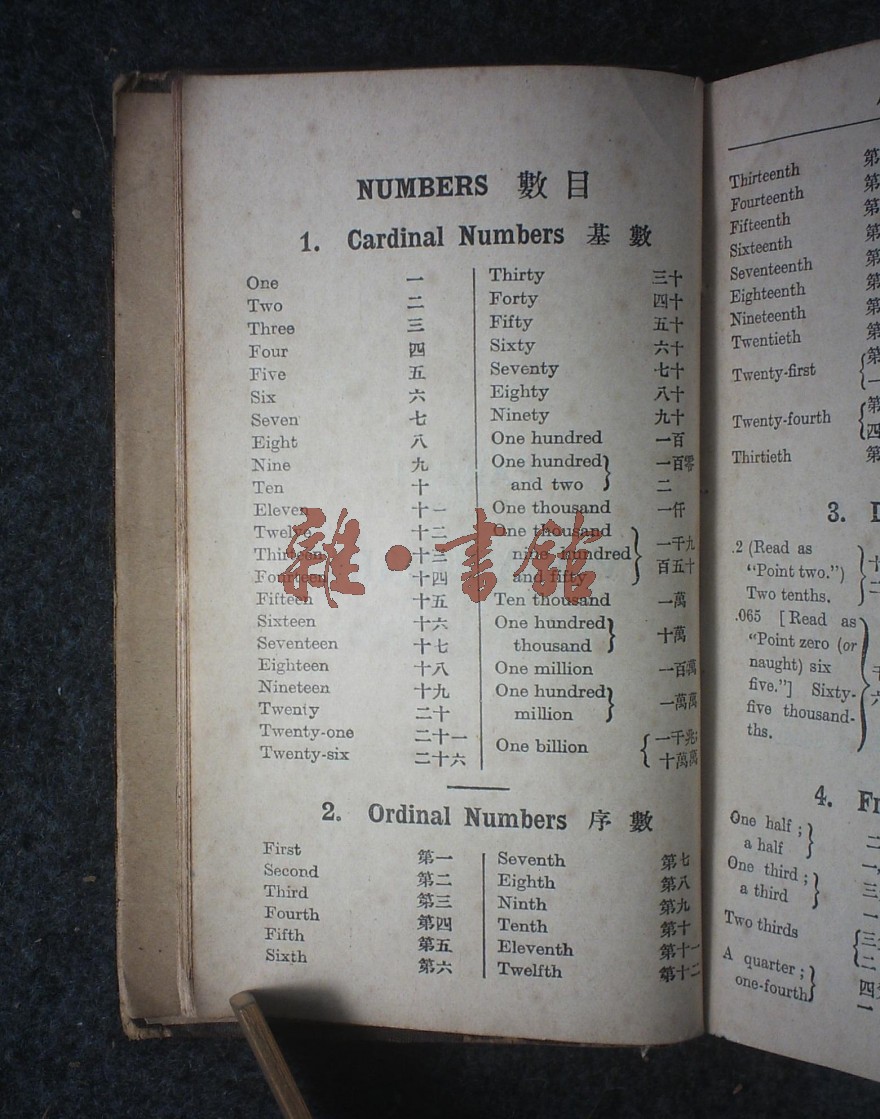 NUMBERS 數目
1. Cardinal Numbers 基數
One 一
Two 二
Three 三
Four 四
Five 五
Six 六
Seven 七
Eight 八
Nine 九
Ten 十
Eleven 十一
Twelve 十二
Thirteen 十三
Fourteen 十四
Fifteen 十五
Sixteen 十六
Seventeen 十七
Eighteen 十八
Nineteen 十九
Twenty 二十
Twenty-one 二十一
Twenty-six 二十六
Thirty 三十
Forty 四十
Fifty 五十
Sixty 六十
Seventy 七十
Eighty 八十
Ninety 九十
One hundred 一百
One hundred 一百零
and two 二
One thousand 一仟
One thousand
nine hundred 一千九
and fifty 百五十
Ten thousand 一萬
One hundred
thousand 十萬
One million 一百萬
One hundred
million 一萬萬
One billion 一千兆
十萬萬
雜·書館
2. Ordinal Numbers 序數
First 第一
Second 第二
Third 第三
Fourth 第四
Fifth 第五
Sixth 第六
Seventh 第七
Eighth 第八
Ninth 第九
Tenth 第十
Eleventh 第十一
Twelfth 第十二
Thirteenth 第
Fourteenth 第
Fifteenth 第
Sixteenth 第
Seventeenth 第
Eighteenth 第
Nineteenth 第
Twentieth 第
Twenty-first 第
一
Twenty-fourth 第
四
Thirtieth 第
3.
.2 (Read as
"Point two.")
Two tenths.
.065 [Read as
"Point zero (or
naught) six
five."] Sixty-
five thousand-
ths.
4. Fr
One half;
a half
One third;
a third
Two thirds
A quarter;
one-fourth